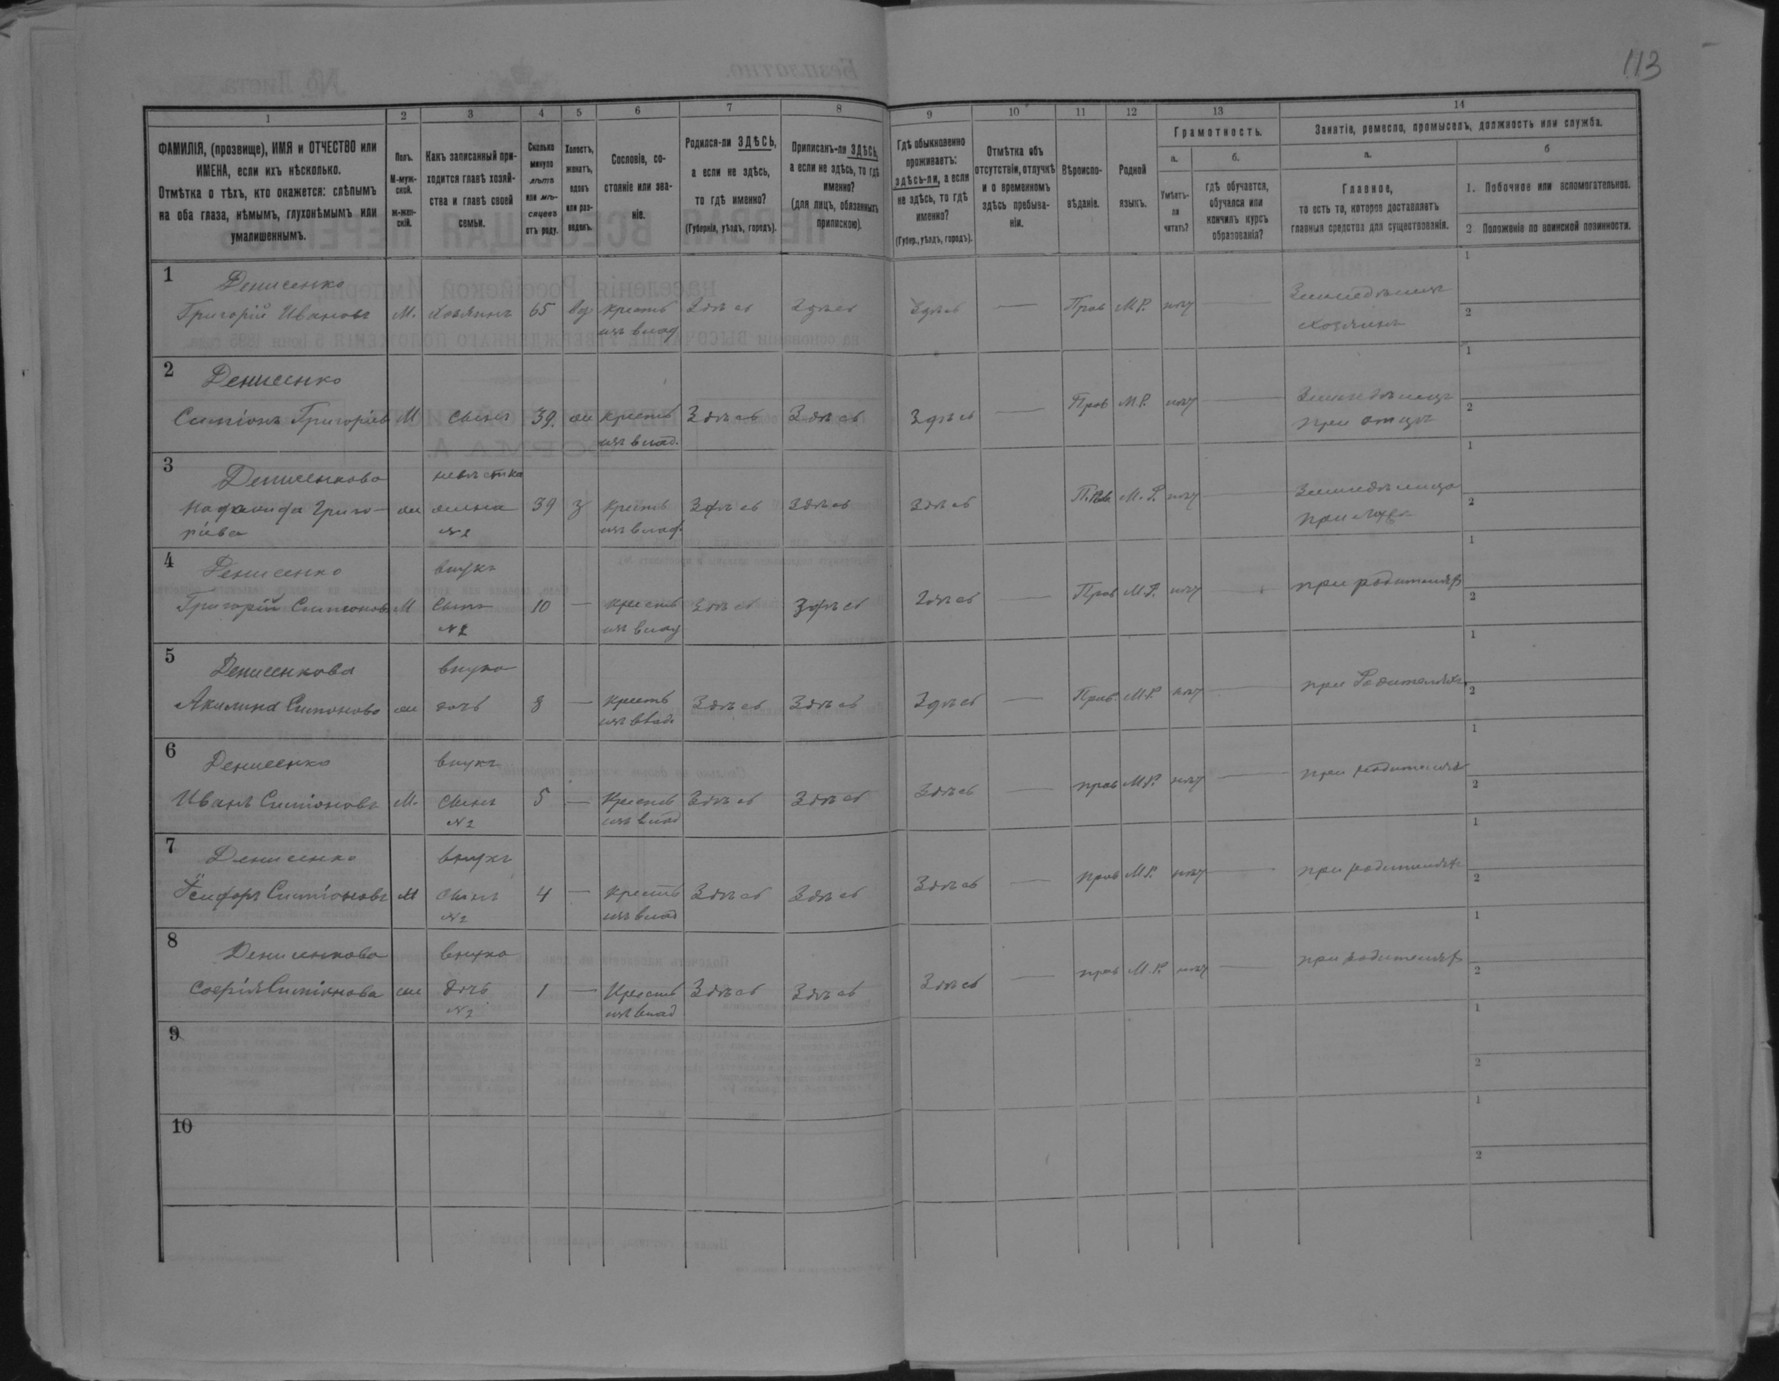 113
1
2
3
4
5
6
7
8
9
10
11
12
13
14
ФАМИЛІЯ, (прозвище), ИМЯ и ОТЧЕСТВО или
ИМЕНА, если ихъ нѣсколько.
Отмѣтка о тѣхъ, кто окажется: слѣпымъ
на оба глаза, нѣмымъ, глухонѣмымъ или
умалишеннымъ.
Полъ.
М-муж-
ской.
Ж-жен-
скій.
Какъ записанный при-
ходится главѣ хозяй-
ства и главѣ своей
семьи.
Сколько
минуло
лѣтъ
или мѣ-
сяцевъ
отъ роду.
Холостъ,
женатъ,
вдовъ
или раз-
веденъ.
Сословіе, со-
стояніе или зва-
ніе.
Родился-ли ЗДѢСЬ,
а если не здѣсь,
то гдѣ именно?
(Губернія, уѣздъ, городъ).
Приписанъ-ли ЗДѢСЬ,
а если не здѣсь, то гдѣ
именно?
(для лицъ, обязанныхъ
припискою).
Гдѣ обыкновенно
проживаетъ:
здѣсь-ли, а если
не здѣсь, то гдѣ
именно?
(Губер., уѣздъ, городъ).
Отмѣтка объ
отсутствіи, отлучкѣ
и о временномъ
здѣсь пребыва-
ніи.
Вѣроиспо-
вѣданіе.
Родной
языкъ.
Грамотность.
а.
б.
Умѣетъ-
ли
читать?
гдѣ обучается,
обучался или
кончилъ курсъ
образованія?
Занятіе, ремесло, промыселъ, должность или служба.
а.
б
Главное,
то есть то, которое доставляетъ
главныя средства для существованія.
1. Побочное или вспомогательное.
2 Положеніе по воинской повинности.
1
Денисенко
Григорій Ивановъ М. хозяинъ 65 вд крестъ Здѣсь Здѣсь Здѣсь — Прав М.Р. нѣт — Земледѣлецъ
изъ влад хозяинъ
1
2
2
Денисенко
Симіонъ Григоріев М сынъ 39. ж крестъ Здѣсь Здѣсь Здѣсь — Прав М.Р. нѣт — Земледѣлецъ
изъ влад. при отцѣ
1
2
3
Денисенкова невѣстка
Григо- ж жена 39 з крестъ Здѣсь Здѣсь Здѣсь Прав М.Р. нѣт — Земледѣлица
ріева №2 изъ влад. при
1
2
4
Денисенко внукъ
Григорій Симіоновъ М сынъ 10 — крестъ Здѣсь Здѣсь Здѣсь — Прав М.Р. нѣт — при родителях
№2 изъ влад
1
2
5
Денисенкова внука
Акилина Симіонова ж дочь 8 — крестъ Здѣсь Здѣсь Здѣсь — Прав М.Р. нѣт — при родителях
изъ влад
1
2
6
Денисенко внукъ
Иванъ Симіоновъ М. сынъ 5 — крестъ Здѣсь Здѣсь Здѣсь — прав М.Р. нѣт — при родителях
№2 изъ влад
1
2
7
Денисенко внукъ
Симіоновъ М сынъ 4 — крестъ Здѣсь Здѣсь Здѣсь — прав М.Р. нѣт — при родителях
№2 изъ влад
1
2
8
Денисенкова внука
Софія Симіонова ж дочь 1 — крестъ Здѣсь Здѣсь Здѣсь — прав М.Р. нѣт — при родителях
№2 изъ влад
1
2
9
1
2
10
1
2